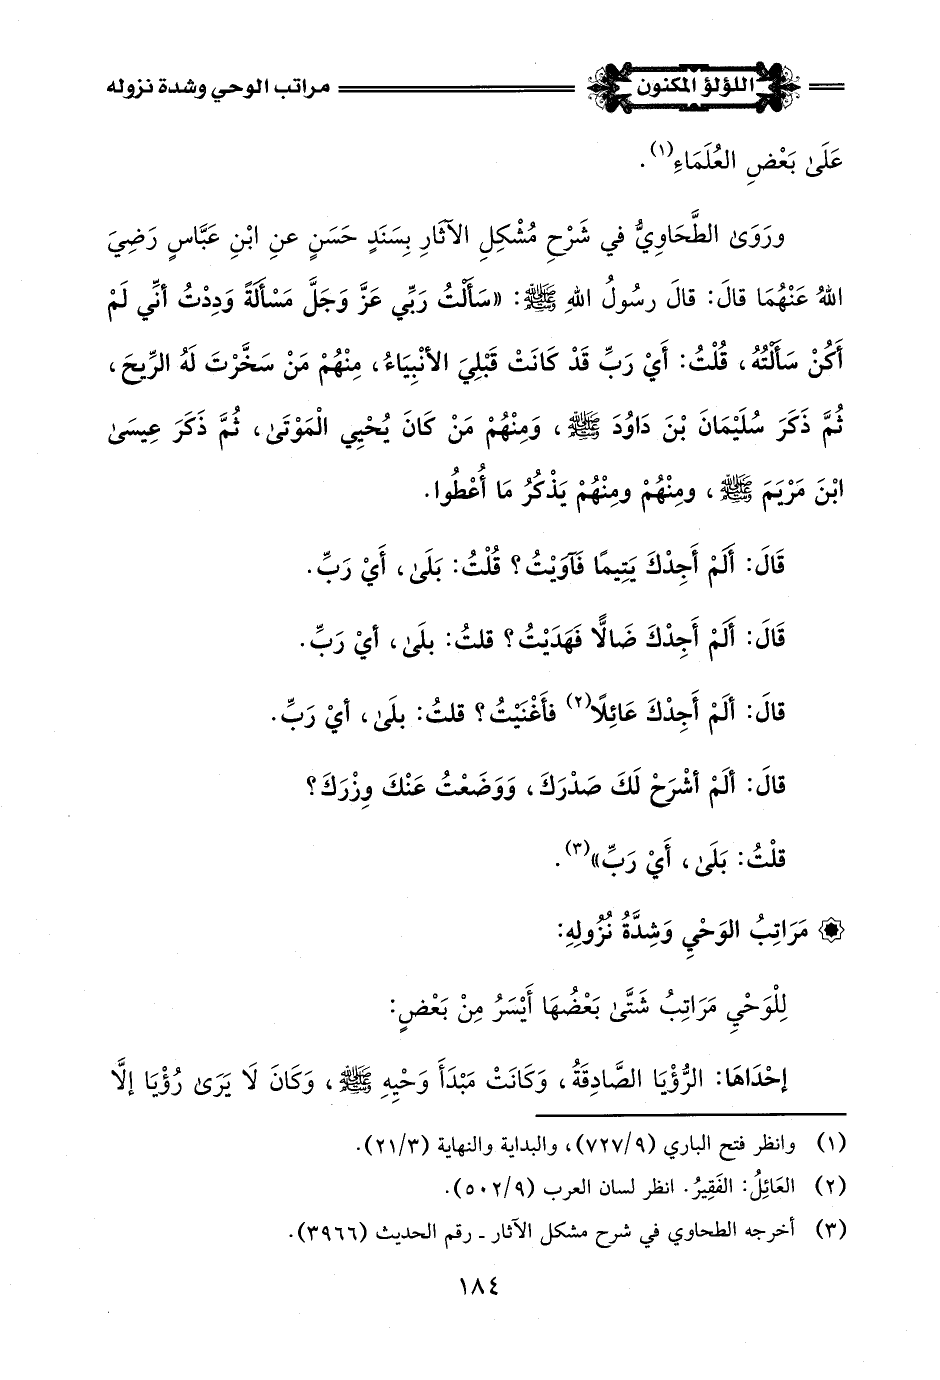 اللؤلؤ المكنون مراتب الوحي وشدة نزوله
عَلَىٰ بَعْضِ العُلَمَاءِ(١).
ورَوَىٰ الطَّحَاوِيُّ في شَرْحِ مُشْكِلِ الآثَارِ بِسَنَدٍ حَسَنٍ عنِ ابْنِ عَبَّاسٍ رَضِيَ
اللهُ عَنْهُمَا قالَ: قالَ رسُولُ اللهِ ﷺ: «سَأَلْتُ رَبِّي عَزَّ وَجَلَّ مَسْأَلةً وَدِدْتُ أنِّي لَمْ
أَكُنْ سَأَلْتُهُ، قُلْتُ: أَيْ رَبِّ قَدْ كَانَتْ قَبْلِيَ الأنْبِيَاءُ، مِنْهُمْ مَنْ سَخَّرْتَ لَهُ الرِّيحَ،
ثُمَّ ذَكَرَ سُلَيْمَانَ بْنَ دَاوُدَ ﷺ، وَمِنْهُمْ مَنْ كَانَ يُحْيِي الْمَوْتَىٰ، ثُمَّ ذَكَرَ عِيسَىٰ
ابْنَ مَرْيَمَ ﷺ، ومِنْهُمْ ومِنْهُمْ يَذْكُرُ مَا أُعْطُوا.
قَالَ: أَلَمْ أَجِدْكَ يَتِيمًا فَآوَيْتُ؟ قُلْتُ: بَلَىٰ، أَيْ رَبِّ.
قَالَ: أَلَمْ أَجِدْكَ ضَالًّا فَهَدَيْتُ؟ قلتُ: بلَىٰ، أيْ رَبِّ.
قالَ: ألَمْ أَجِدْكَ عَائِلًا(٢) فأَغْنَيْتُ؟ قلتُ: بلَىٰ، أيْ رَبِّ.
قالَ: ألَمْ أشْرَحْ لَكَ صَدْرَكَ، وَوَضَعْتُ عَنْكَ وِزْرَكَ؟
قلْتُ: بَلَىٰ، أَيْ رَبِّ»(٣).
مَرَاتِبُ الوَحْيِ وَشِدَّةُ نُزُولِهِ:
لِلْوَحْيِ مَرَاتِبُ شَتَّىٰ بَعْضُهَا أَيْسَرُ مِنْ بَعْضٍ:
إحْدَاهَا: الرُّؤْيَا الصَّادِقَةُ، وَكَانَتْ مَبْدَأَ وَحْيِهِ ﷺ، وَكَانَ لَا يَرَىٰ رُؤْيَا إلَّا
(١) وانظر فتح الباري (٧٢٧/٩)، والبداية والنهاية (٢١/٣).
(٢) العَائِلُ: الفَقِيرُ. انظر لسان العرب (٥٠٢/٩).
(٣) أخرجه الطحاوي في شرح مشكل الآثار ـ رقم الحديث (٣٩٦٦).
١٨٤